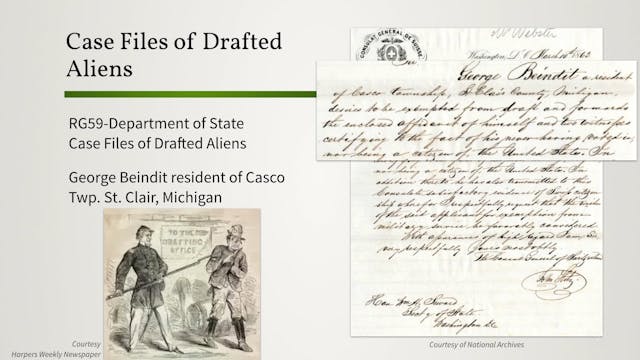 Case Files of Drafted
Aliens
RG59-Department of State
Case Files of Drafted Aliens
George Beindit resident of Casco
Twp. St. Clair, Michigan
TO THE
DRAFTING
OFFICE
Courtesy
Harpers Weekly Newspaper
Webster
CONSULAT GENERAL DE SUISSE
Washington, D.C. March 1863
George Beindit a resident
of Casco township, St Clair County, Michigan,
desires to be exempted from draft and forwards
the enclosed affidavit of himself and two witnesses
certifying to the fact of his never having voted
nor being a citizen of the United States. In
nor being a citizen of the United States. In
addition he has also transmitted to this
Consulate satisfactory evidence of Swiss citizen
ship I respectfully request that the
of the said applicant for exemption from
military service be favorably considered
With assurance of high regard I am, Sir
very respectfully yours most obtly.
The Consul General of Switzerland
Hon. Wm H. Seward
Secty of State
Washington DC
Courtesy of National Archives